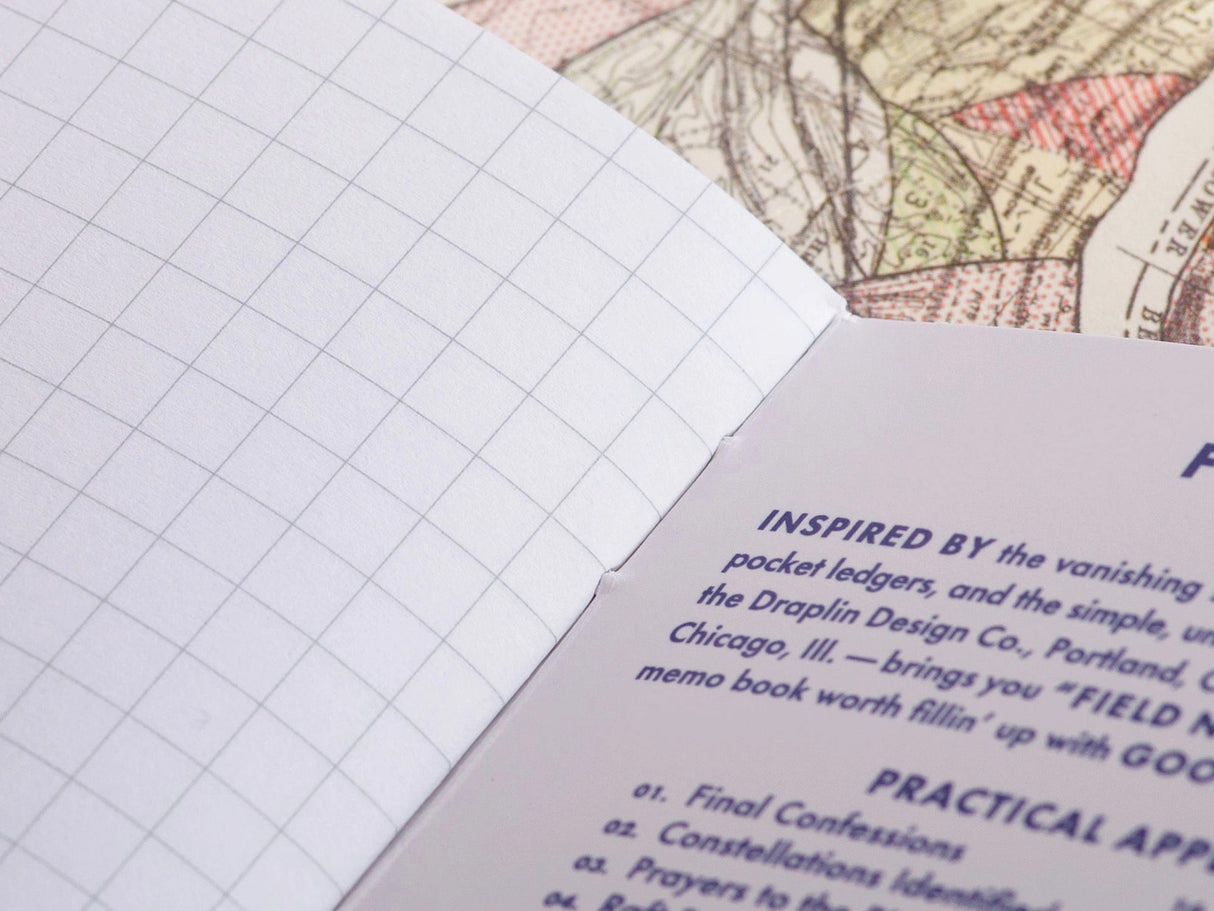 OWER
BE
INSPIRED BY the vanishing
pocket ledgers, and the simple, un
the Draplin Design Co., Portland,
Chicago, Ill. — brings you “FIELD N
memo book worth fillin’ up with GOO
PRACTICAL APPL
01. Final Confessions
02. Constellations Identified
03. Prayers to the
04. Raft